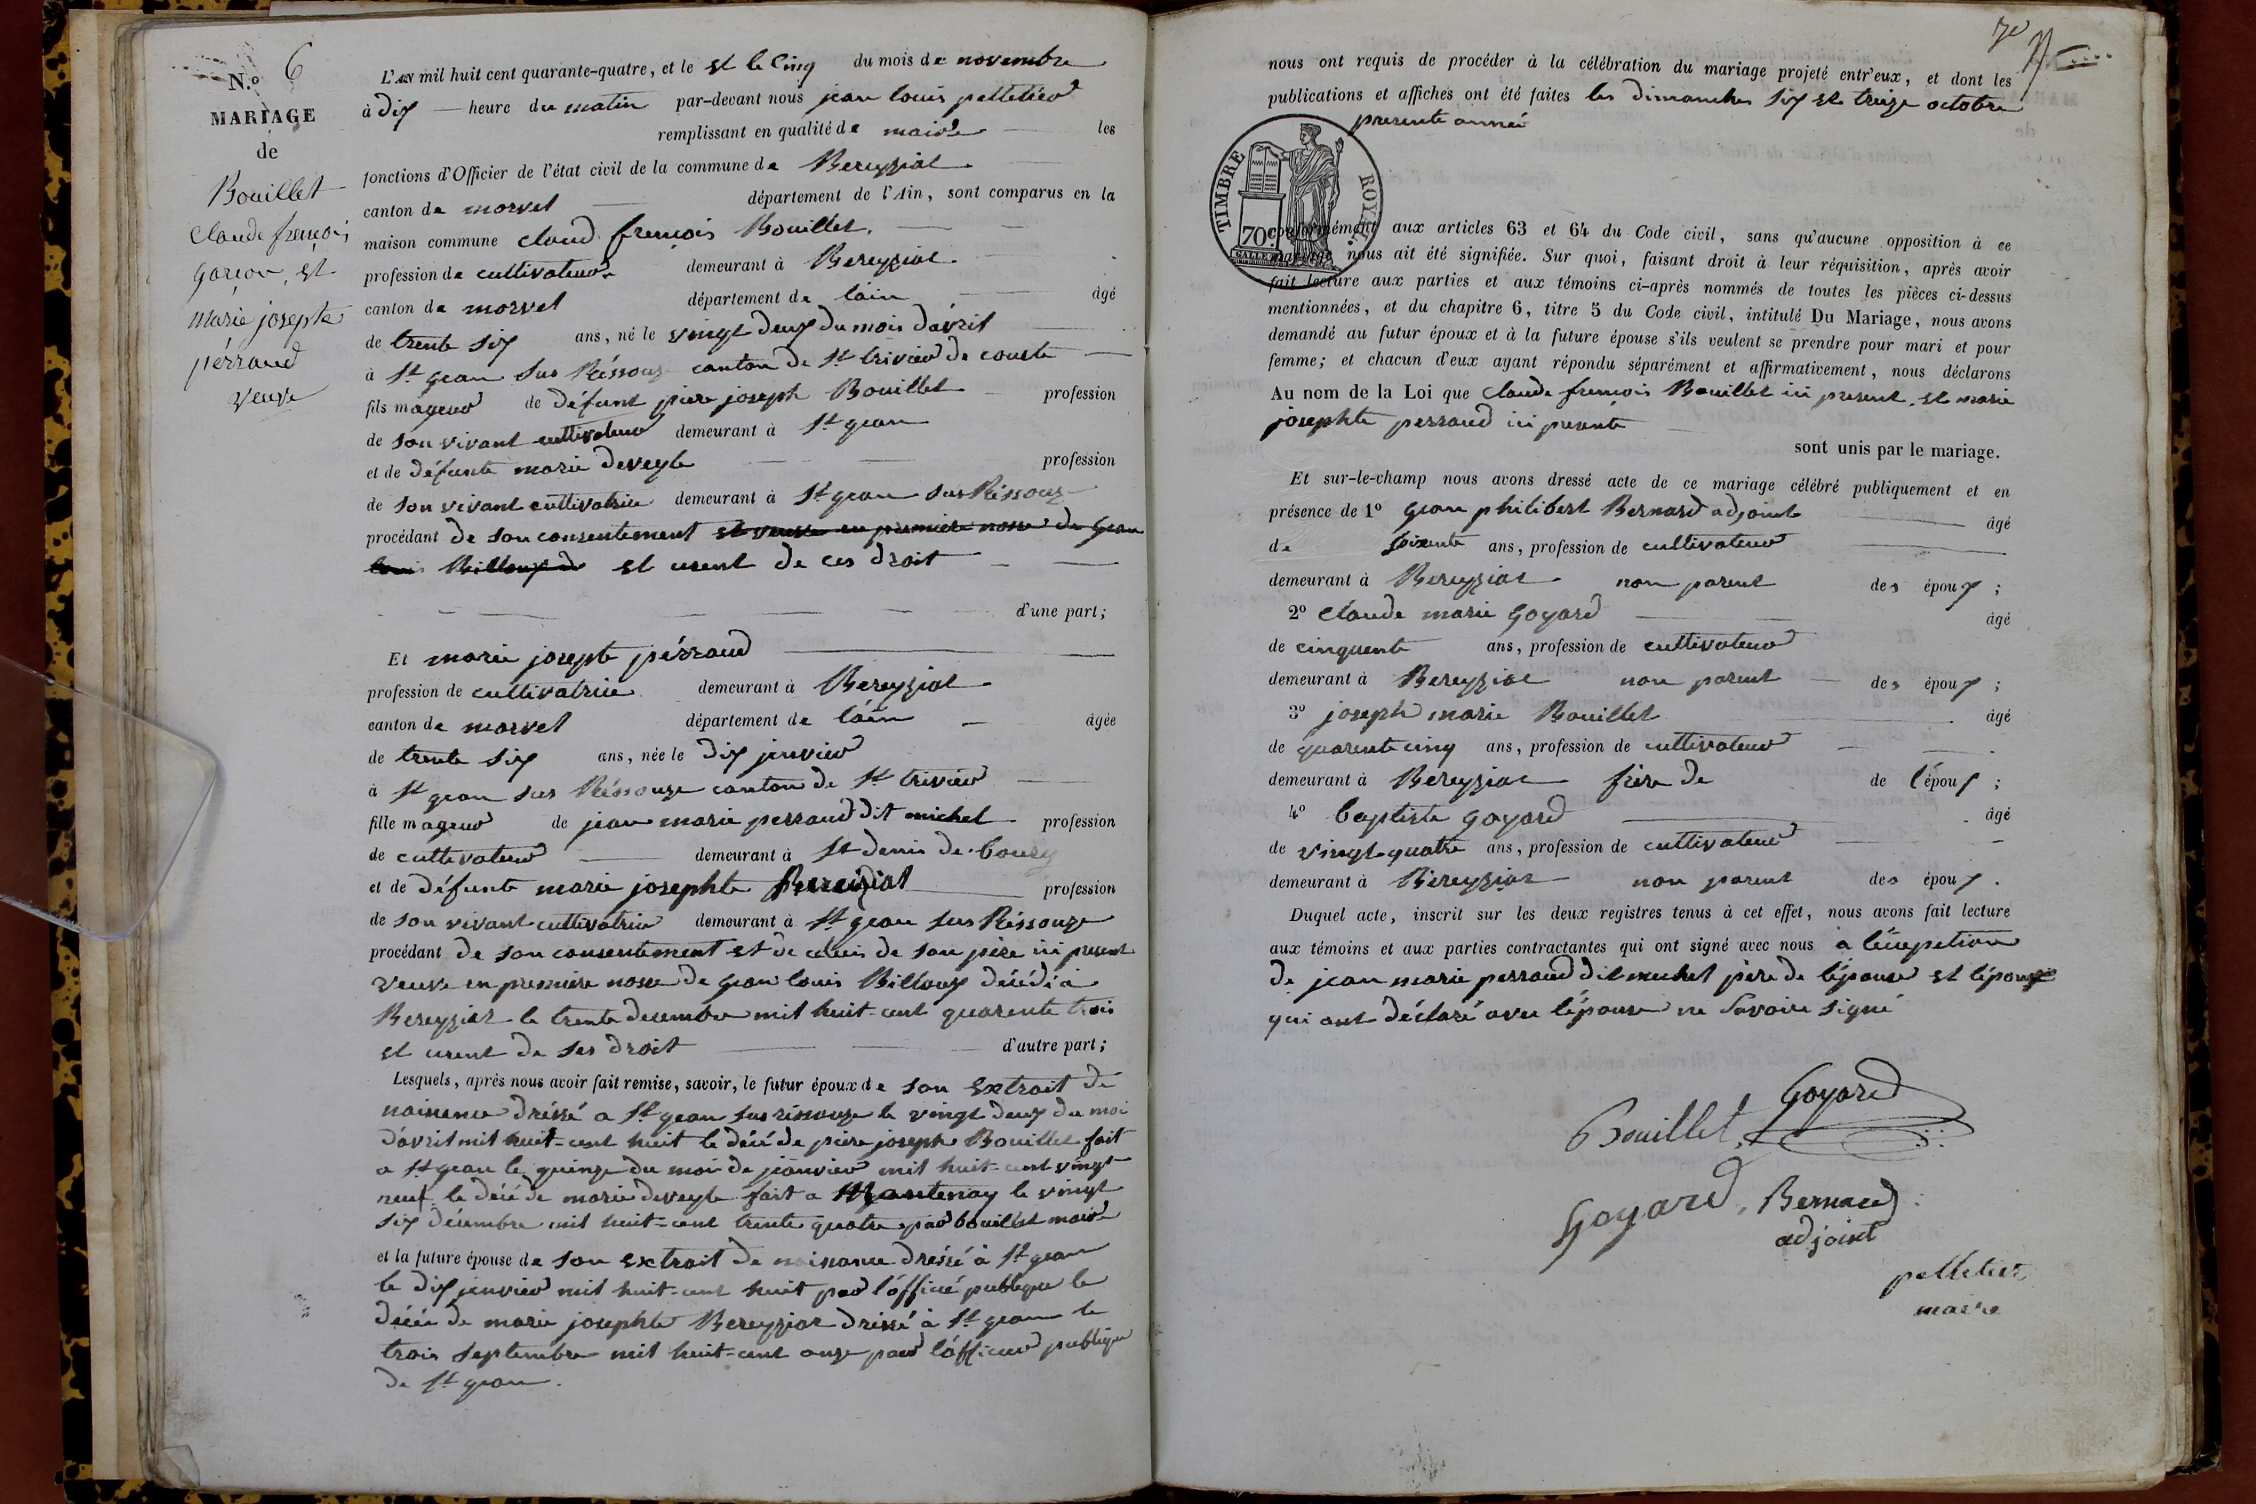 N.o 6
MARIAGE
de
Bouillet
claude françois
garçon, et
marie josephte
pérraud
veuve
L'AN mil huit cent quarante-quatre, et le et le Cinq du mois de novembre
à dix heure du matin par-devant nous jean louis pelletier
remplissant en qualité de maire les
fonctions d'Officier de l'état civil de la commune de Bereyziat
canton de morvel département de l'Ain, sont comparus en la
maison commune claud françois Bouillet.
profession de cultivateur demeurant à Bereyziat
canton de morvel département de lain âgé
de trente six ans, né le vingt deux du mois d'avril
à St gean sus Réssouze canton de St trivier de courte
fils mageur de défunt piere joseph Bouillet profession
de son vivant cultivateur demeurant à St gean
et de défunte marie deveyle profession
de son vivant cultivatrice demeurant à St gean sus Réssouze
procédant de son consentement et veuve en premiere nosse de gean
louis Billoux et usent de ces droit
d'une part;
Et marie josepte pérraud
profession de cultivatrice demeurant à Bereyziat
canton de morvel département de láin âgée
de trente six ans, née le dix jenvier
à St gean sus Réssouze canton de St trivier
fille mageur de jean marie perraud dit michel profession
de cultivateur demeurant à St denis de bourg
et de défunte marie josephte Bereiziat profession
de son vivant cultivatrice demeurant à St gean sus Réssouze
procédant de son consentement et de celui de son père ici present
veuve en premiere nosse de gean louis Billoux décédé à
Bereyziat le trente decembre mil huit-cent quarente trois
et usent de ses droit d'autre part;
Lesquels, après nous avoir fait remise, savoir, le futur époux de son extrait de
naisence dréssé a St gean sus rissouze le vingt deux du moi
d'avril mil huit-cent huit le décé de piere joseph Bouillet fait
a St gean le quinze du moi de jeanvier mil huit-cent vingt
neuf le décé de marie deveyle fait a Mantenay le vingt
six décembre mil huit-cent trente quatre par bouillet maire
et la future épouse de son extrait de naisance dréssé à St gean
le dix jenvier mil huit-cent huit par l'ófficié publique le
décée de marie josephte Bereyziat dréssé à St gean le
trois septembre mil huit-cent onze par l'ófficier publique
de St gean.
70
nous ont requis de procéder à la célébration du mariage projeté entr'eux, et dont les
publications et affiches ont été faites les dimanches six et treize octobre
presente année
TIMBRE ROYAL
70c
conformément aux articles 63 et 64 du Code civil, sans qu'aucune opposition à ce
mariage nous ait été signifiée. Sur quoi, faisant droit à leur réquisition, après avoir
fait lecture aux parties et aux témoins ci-après nommés de toutes les pièces ci-dessus
mentionnées, et du chapitre 6, titre 5 du Code civil, intitulé Du Mariage, nous avons
demandé au futur époux et à la future épouse s'ils veulent se prendre pour mari et pour
femme; et chacun d'eux ayant répondu séparément et affirmativement, nous déclarons
Au nom de la Loi que claude françois Bouillet ici present, et marie
josephte perraud ici presente
sont unis par le mariage.
Et sur-le-champ nous avons dressé acte de ce mariage célébré publiquement et en
présence de 1o gean philibert Bernard adjoint âgé
de soixente ans, profession de cultivateur
demeurant à Bereyziat non parent des époux;
2o claude marie goyard âgé
de cinquente ans, profession de cultivateur
demeurant à Bereyziat non parent des époux;
3o joseph marie Bouillet âgé
de quarente cinq ans, profession de cultivateur
demeurant à Bereyziat frère de de l'époux;
4o baptiste goyard âgé
de vingt-quatre ans, profession de cultivateur
demeurant à Bereyziat non parent des époux.
Duquel acte, inscrit sur les deux registres tenus à cet effet, nous avons fait lecture
aux témoins et aux parties contractantes qui ont signé avec nous a lécepetion
de jean marie perraud dit michel père de l'épouse et l'épouse
qui ont déclaré avec l'épouse ne savoire signé
goyard
Bouillet
goyard, Bernard
adjoint
pelletier
maire